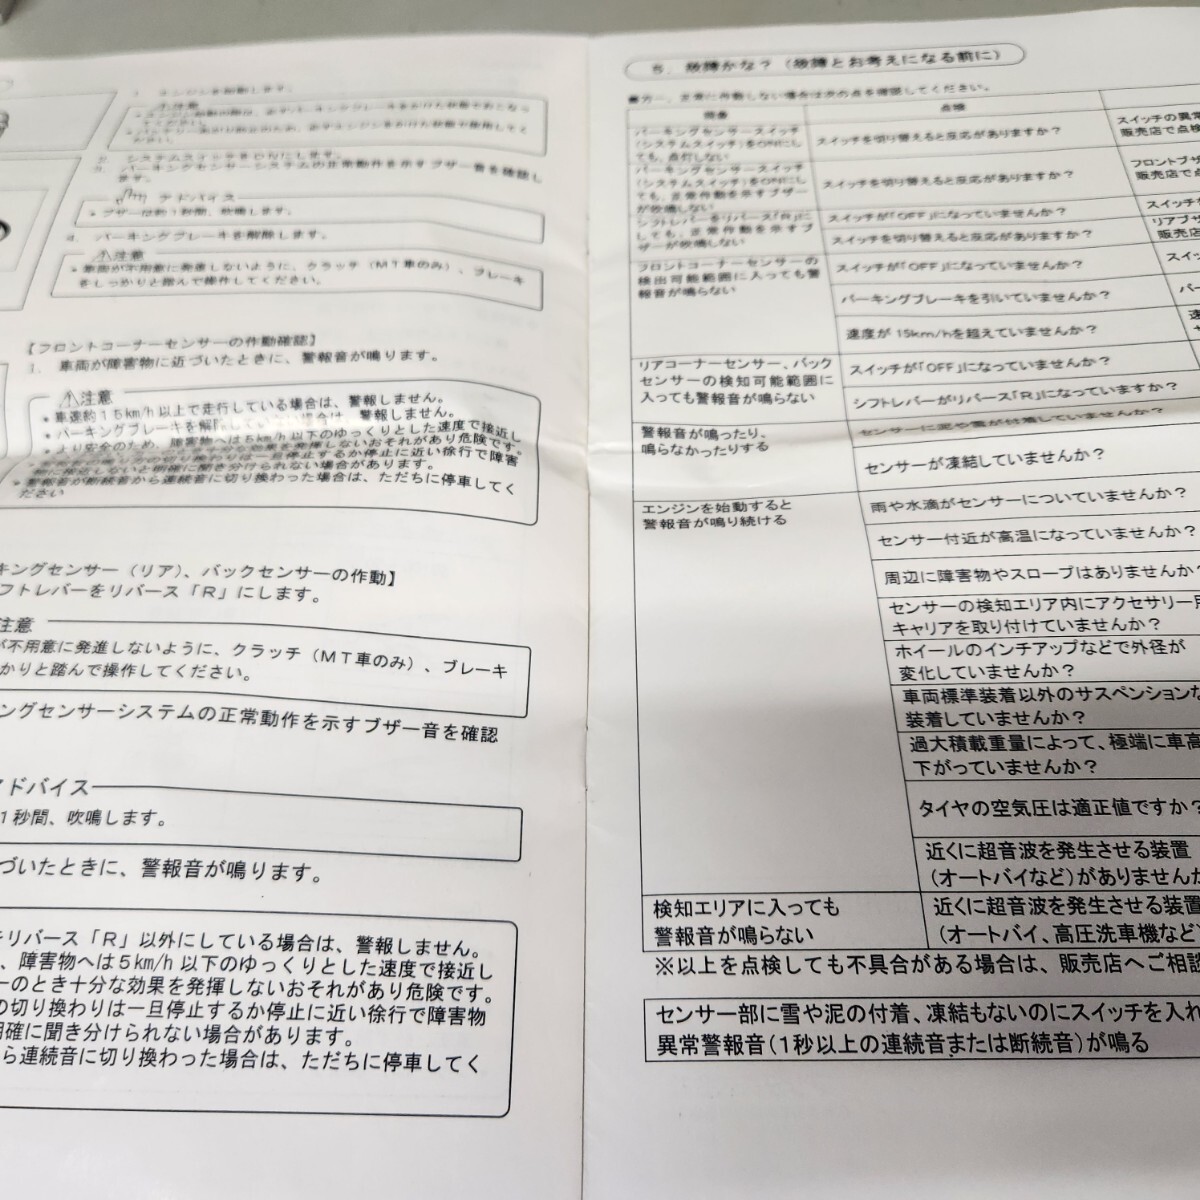 1. エンジンを始動します。
⚠注意
2. システムスイッチをONにします。
3. パーキングセンサーシステムの正常動作を示すブザー音を確認し
ます。
アドバイス
• ブザーは約1秒間、吹鳴します。
4. パーキングブレーキを解除します。
⚠注意
• 車両が不用意に発進しないように、クラッチ(MT車のみ)、ブレーキ
をしっかりと踏んで操作してください。
【フロントコーナーセンサーの作動確認】
車両が障害物に近づいたときに、警報音が鳴ります。
⚠注意
• 車速約15km/h以上で走行している場合は、警報しません。
• パーキングブレーキを解除していない場合は、警報しません。
• より安全のため、障害物へは5km/h以下のゆっくりとした速度で接近し
切り換わりは一旦停止するか停止に近い徐行で障害
明確に聞き分けられない場合があります。
• 警報音が断続音から連続音に切り換わった場合は、ただちに停車してく
ださい
キングセンサー(リア)、バックセンサーの作動】
フトレバーをリバース「R」にします。
注意
が不用意に発進しないように、クラッチ(MT車のみ)、ブレーキ
かりと踏んで操作してください。
ングセンサーシステムの正常動作を示すブザー音を確認
アドバイス
1秒間、吹鳴します。
づいたときに、警報音が鳴ります。
をリバース「R」以外にしている場合は、警報しません。
、障害物へは5km/h以下のゆっくりとした速度で接近し
ーのとき十分な効果を発揮しないおそれがあり危険です。
の切り換わりは一旦停止するか停止に近い徐行で障害物
明確に聞き分けられない場合があります。
ら連続音に切り換わった場合は、ただちに停車してく
5. 故障かな?(故障とお考えになる前に)
■万一、正常に作動しない場合は次の点を確認してください。
現象
点検
パーキングセンサースイッチ
(システムスイッチ)をONにし
ても、点灯しない
スイッチを切り替えると反応がありますか?
スイッチの異常
販売店で点検
パーキングセンサースイッチ
(システムスイッチ)をONにし
ても、正常作動を示すブザー
が吹鳴しない
スイッチを切り替えると反応がありますか?
フロントブザ
販売店で点
シフトレバーをリバース「R」に
しても、正常作動を示すブ
ザーが吹鳴しない
スイッチが「OFF」になっていませんか?
スイッチを
スイッチを切り替えると反応がありますか?
リアブザ
販売店
フロントコーナーセンサーの
検出可能範囲に入っても警
報音が鳴らない
スイッチが「OFF」になっていませんか?
スイッ
パーキングブレーキを引いていませんか?
パー
速度が 15km/hを超えていませんか?
速
リアコーナーセンサー、バック
センサーの検知可能範囲に
入っても警報音が鳴らない
スイッチが「OFF」になっていませんか?
シフトレバーがリバース「R」になっていますか?
警報音が鳴ったり、
鳴らなかったりする
センサーに泥や雪が付着していませんか?
センサーが凍結していませんか?
雨や水滴がセンサーについていませんか?
エンジンを始動すると
警報音が鳴り続ける
センサー付近が高温になっていませんか?
周辺に障害物やスロープはありませんか?
センサーの検知エリア内にアクセサリー用
キャリアを取り付けていませんか?
ホイールのインチアップなどで外径が
変化していませんか?
車両標準装着以外のサスペンションな
装着していませんか?
過大積載重量によって、極端に車高
下がっていませんか?
タイヤの空気圧は適正値ですか?
近くに超音波を発生させる装置
(オートバイなど)がありませんか
検知エリアに入っても
警報音が鳴らない
近くに超音波を発生させる装置
(オートバイ、高圧洗車機など)
※以上を点検しても不具合がある場合は、販売店へご相談
センサー部に雪や泥の付着、凍結もないのにスイッチを入れ
異常警報音(1秒以上の連続音または断続音)が鳴る